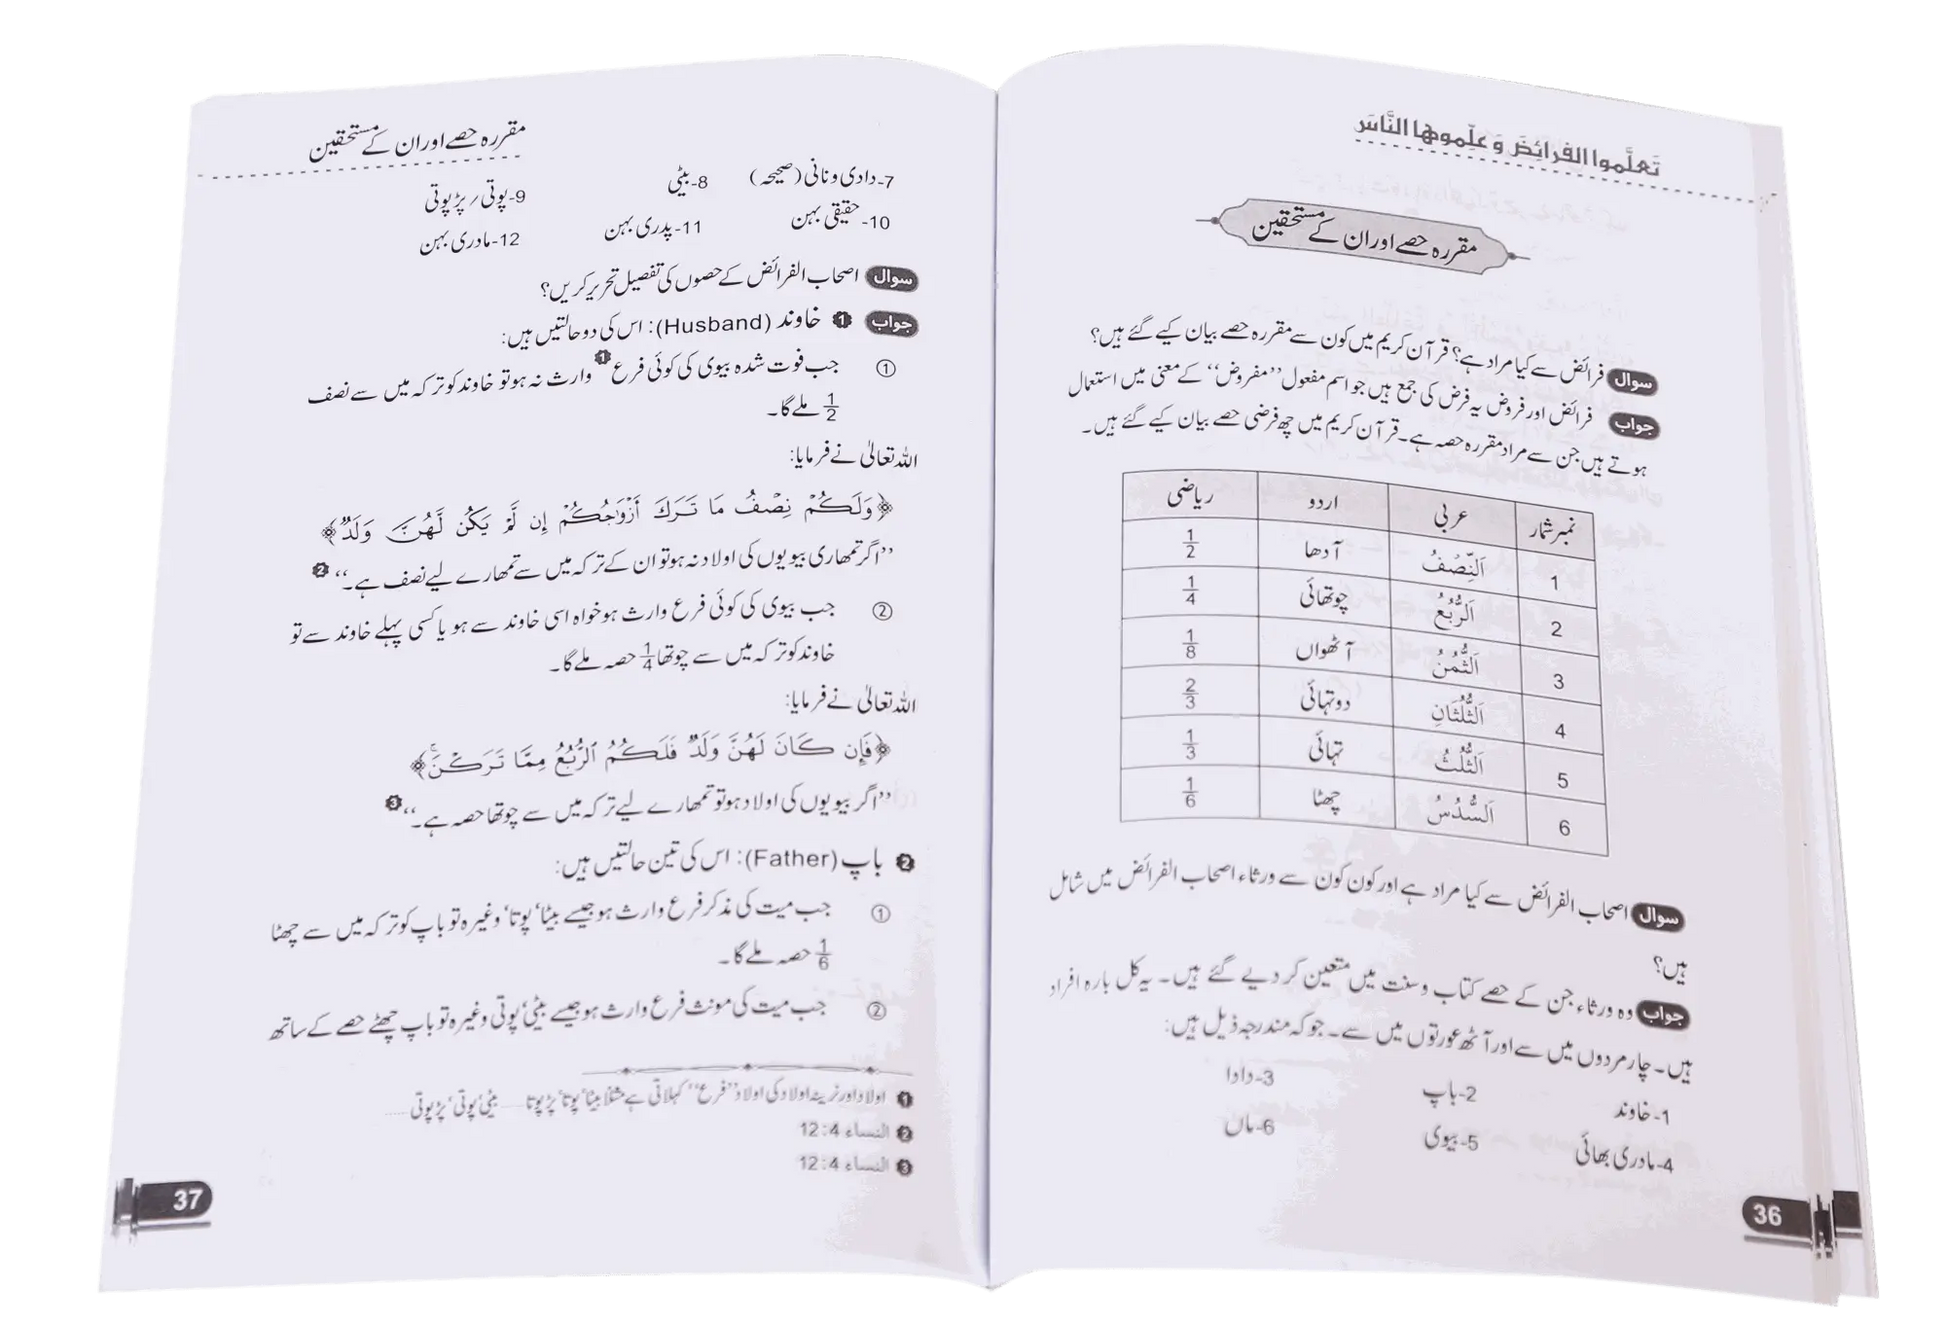 تَعلَّموا الفرائِضَ وَ علِّموها النَّاسَ
مقررہ حصے اور ان کے مستحقین
سوال فرائض سے کیا مراد ہے؟ قرآن کریم میں کون سے مقررہ حصے بیان کیے گئے ہیں؟
جواب فرائض اور فروض یہ فرض کی جمع ہیں جو اسم مفعول ’’مفروض‘‘ کے معنی میں استعمال
ہوتے ہیں جن سے مراد مقررہ حصہ ہے۔ قرآن کریم میں چھ فرضی حصے بیان کیے گئے ہیں۔
نمبر شمار عربی اردو ریاضی
1 اَلنِّصْفُ آدھا 1/2
2 اَلرُّبُعُ چوتھائی 1/4
3 اَلثُّمُنُ آٹھواں 1/8
4 اَلثُّلُثَانِ دو تہائی 2/3
5 اَلثُّلُثُ تہائی 1/3
6 اَلسُّدُسُ چھٹا 1/6
سوال اصحاب الفرائض سے کیا مراد ہے اور کون کون سے ورثاء اصحاب الفرائض میں شامل
ہیں؟
جواب وہ ورثاء جن کے حصے کتاب و سنت میں متعین کر دیے گئے ہیں۔ یہ کل بارہ افراد
ہیں۔ چار مردوں میں سے اور آٹھ عورتوں میں سے۔ جو کہ مندرجہ ذیل ہیں:
1- خاوند 2- باپ 3- دادا
4- مادری بھائی 5- بیوی 6- ماں
36
مقررہ حصے اور ان کے مستحقین
7- دادی و نانی (صحیحہ) 8- بیٹی 9- پوتی / پڑپوتی
10- حقیقی بہن 11- پدری بہن 12- مادری بہن
سوال اصحاب الفرائض کے حصوں کی تفصیل تحریر کریں؟
جواب 1 خاوند (Husband): اس کی دو حالتیں ہیں:
① جب فوت شدہ بیوی کی کوئی فرع 1 وارث نہ ہو تو خاوند کو ترکہ میں سے نصف
1/2 ملے گا۔
اللہ تعالیٰ نے فرمایا:
﴿وَلَكُمْ نِصْفُ مَا تَرَكَ أَزْوَاجُكُمْ إِن لَّمْ يَكُن لَّهُنَّ وَلَدٌ﴾
’’اگر تمھاری بیویوں کی اولاد نہ ہو تو ان کے ترکہ میں سے تمھارے لیے نصف ہے۔‘‘ 2
② جب بیوی کی کوئی فرع وارث ہو خواہ اسی خاوند سے ہو یا کسی پہلے خاوند سے تو
خاوند کو ترکہ میں سے چوتھا 1/4 حصہ ملے گا۔
اللہ تعالیٰ نے فرمایا:
﴿فَإِن كَانَ لَهُنَّ وَلَدٌ فَلَكُمُ الرُّبُعُ مِمَّا تَرَكْنَ﴾
’’اگر بیویوں کی اولاد ہو تو تمھارے لیے ترکہ میں سے چوتھا حصہ ہے۔‘‘ 3
2 باپ (Father): اس کی تین حالتیں ہیں:
① جب میت کی مذکر فرع وارث ہو جیسے بیٹا‘ پوتا‘ وغیرہ تو باپ کو ترکہ میں سے چھٹا
1/6 حصہ ملے گا۔
② جب میت کی مونث فرع وارث ہو جیسے بیٹی‘ پوتی وغیرہ تو باپ چھٹے حصے کے ساتھ
1 اولاد اور نرینہ اولاد کی اولاد ’’فرع‘‘ کہلاتی ہے مثلاً بیٹا‘ پوتا‘ پڑپوتا...... بیٹی‘ پوتی‘ پڑپوتی......
2 النساء 4:12
3 النساء 4:12
37